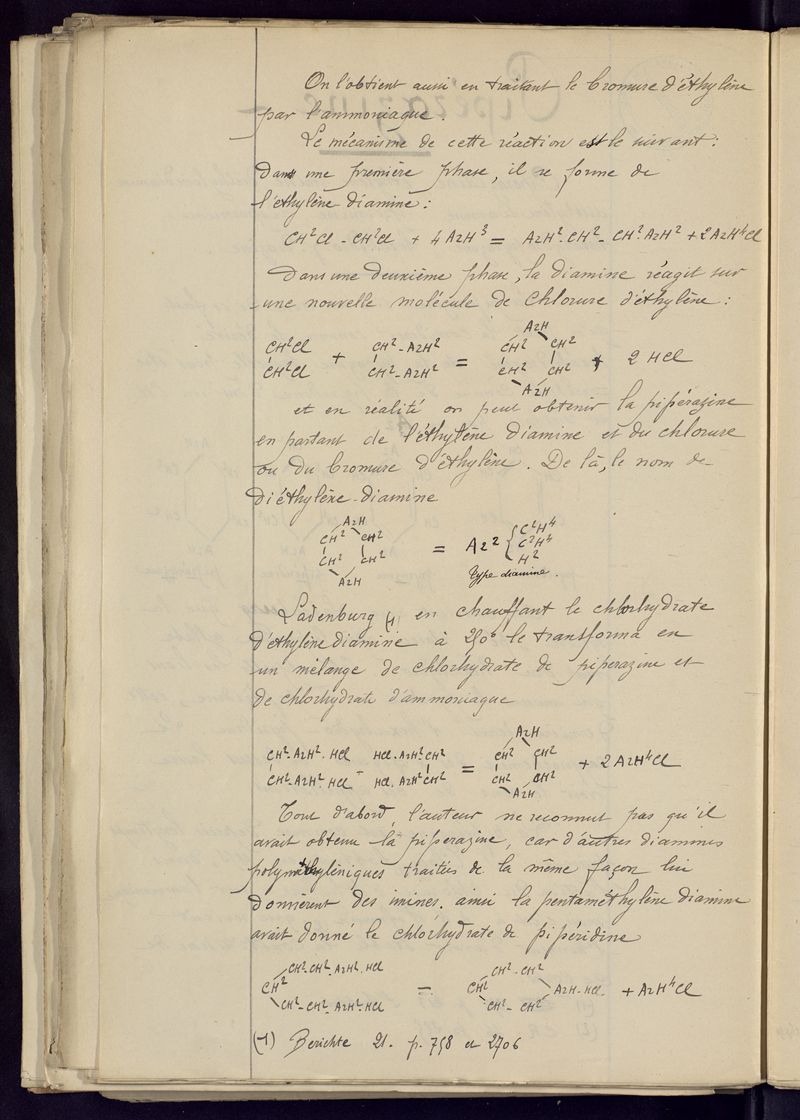 On l'obtient aussi en traitant le bromure d'éthylène
par l'ammoniaque.
Le mécanisme de cette réaction est le suivant:
Dans une première phase, il se forme de
l'éthylène diamine:
CH²Cl - CH²Cl + 4 AzH³ = AzH²-CH² - CH²-AzH² + 2AzH⁴Cl
Dans une deuxième phase, la diamine réagit sur
une nouvelle molécule de chlorure d'éthylène:
AzH
CH²Cl CH²-AzH² CH² CH²
+ = + 2 HCl
CH²Cl CH²-AzH² CH² CH²
AzH
et en réalité on peut obtenir la pipérazine
en partant de l'éthylène diamine et du chlorure
ou du bromure d'éthylène. De là, le nom de
Diéthylène-diamine
AzH
CH² CH² C²H⁴
= Az² { C²H⁴
CH² CH² H²
AzH Type diamine.
Ladenburg (1) en chauffant le chlorhydrate
d'éthylène diamine à 250° le transforma en
un mélange de chlorhydrate de piperazine et
de chlorhydrate d'ammoniaque
AzH
CH²-AzH²-HCl HCl-AzH²-CH² CH² CH²
- = + 2AzH⁴Cl
CH²-AzH²-HCl HCl-AzH²-CH² CH² CH²
AzH
Tout d'abord, l'auteur ne reconnut pas qu'il
avait obtenu la piperazine, car d'autres diamines
polyméthyléniques traitées de la même façon lui
donnèrent des imines. ainsi la pentaméthylène diamine
avait donné le chlorhydrate de pipéridine
CH²-CH²-AzH²-HCl CH²-CH²
CH² = CH² AzH-HCl + AzH⁴Cl
CH²-CH²-AzH²-HCl CH²-CH²
(1) Berichte 21. p. 758 et 2706